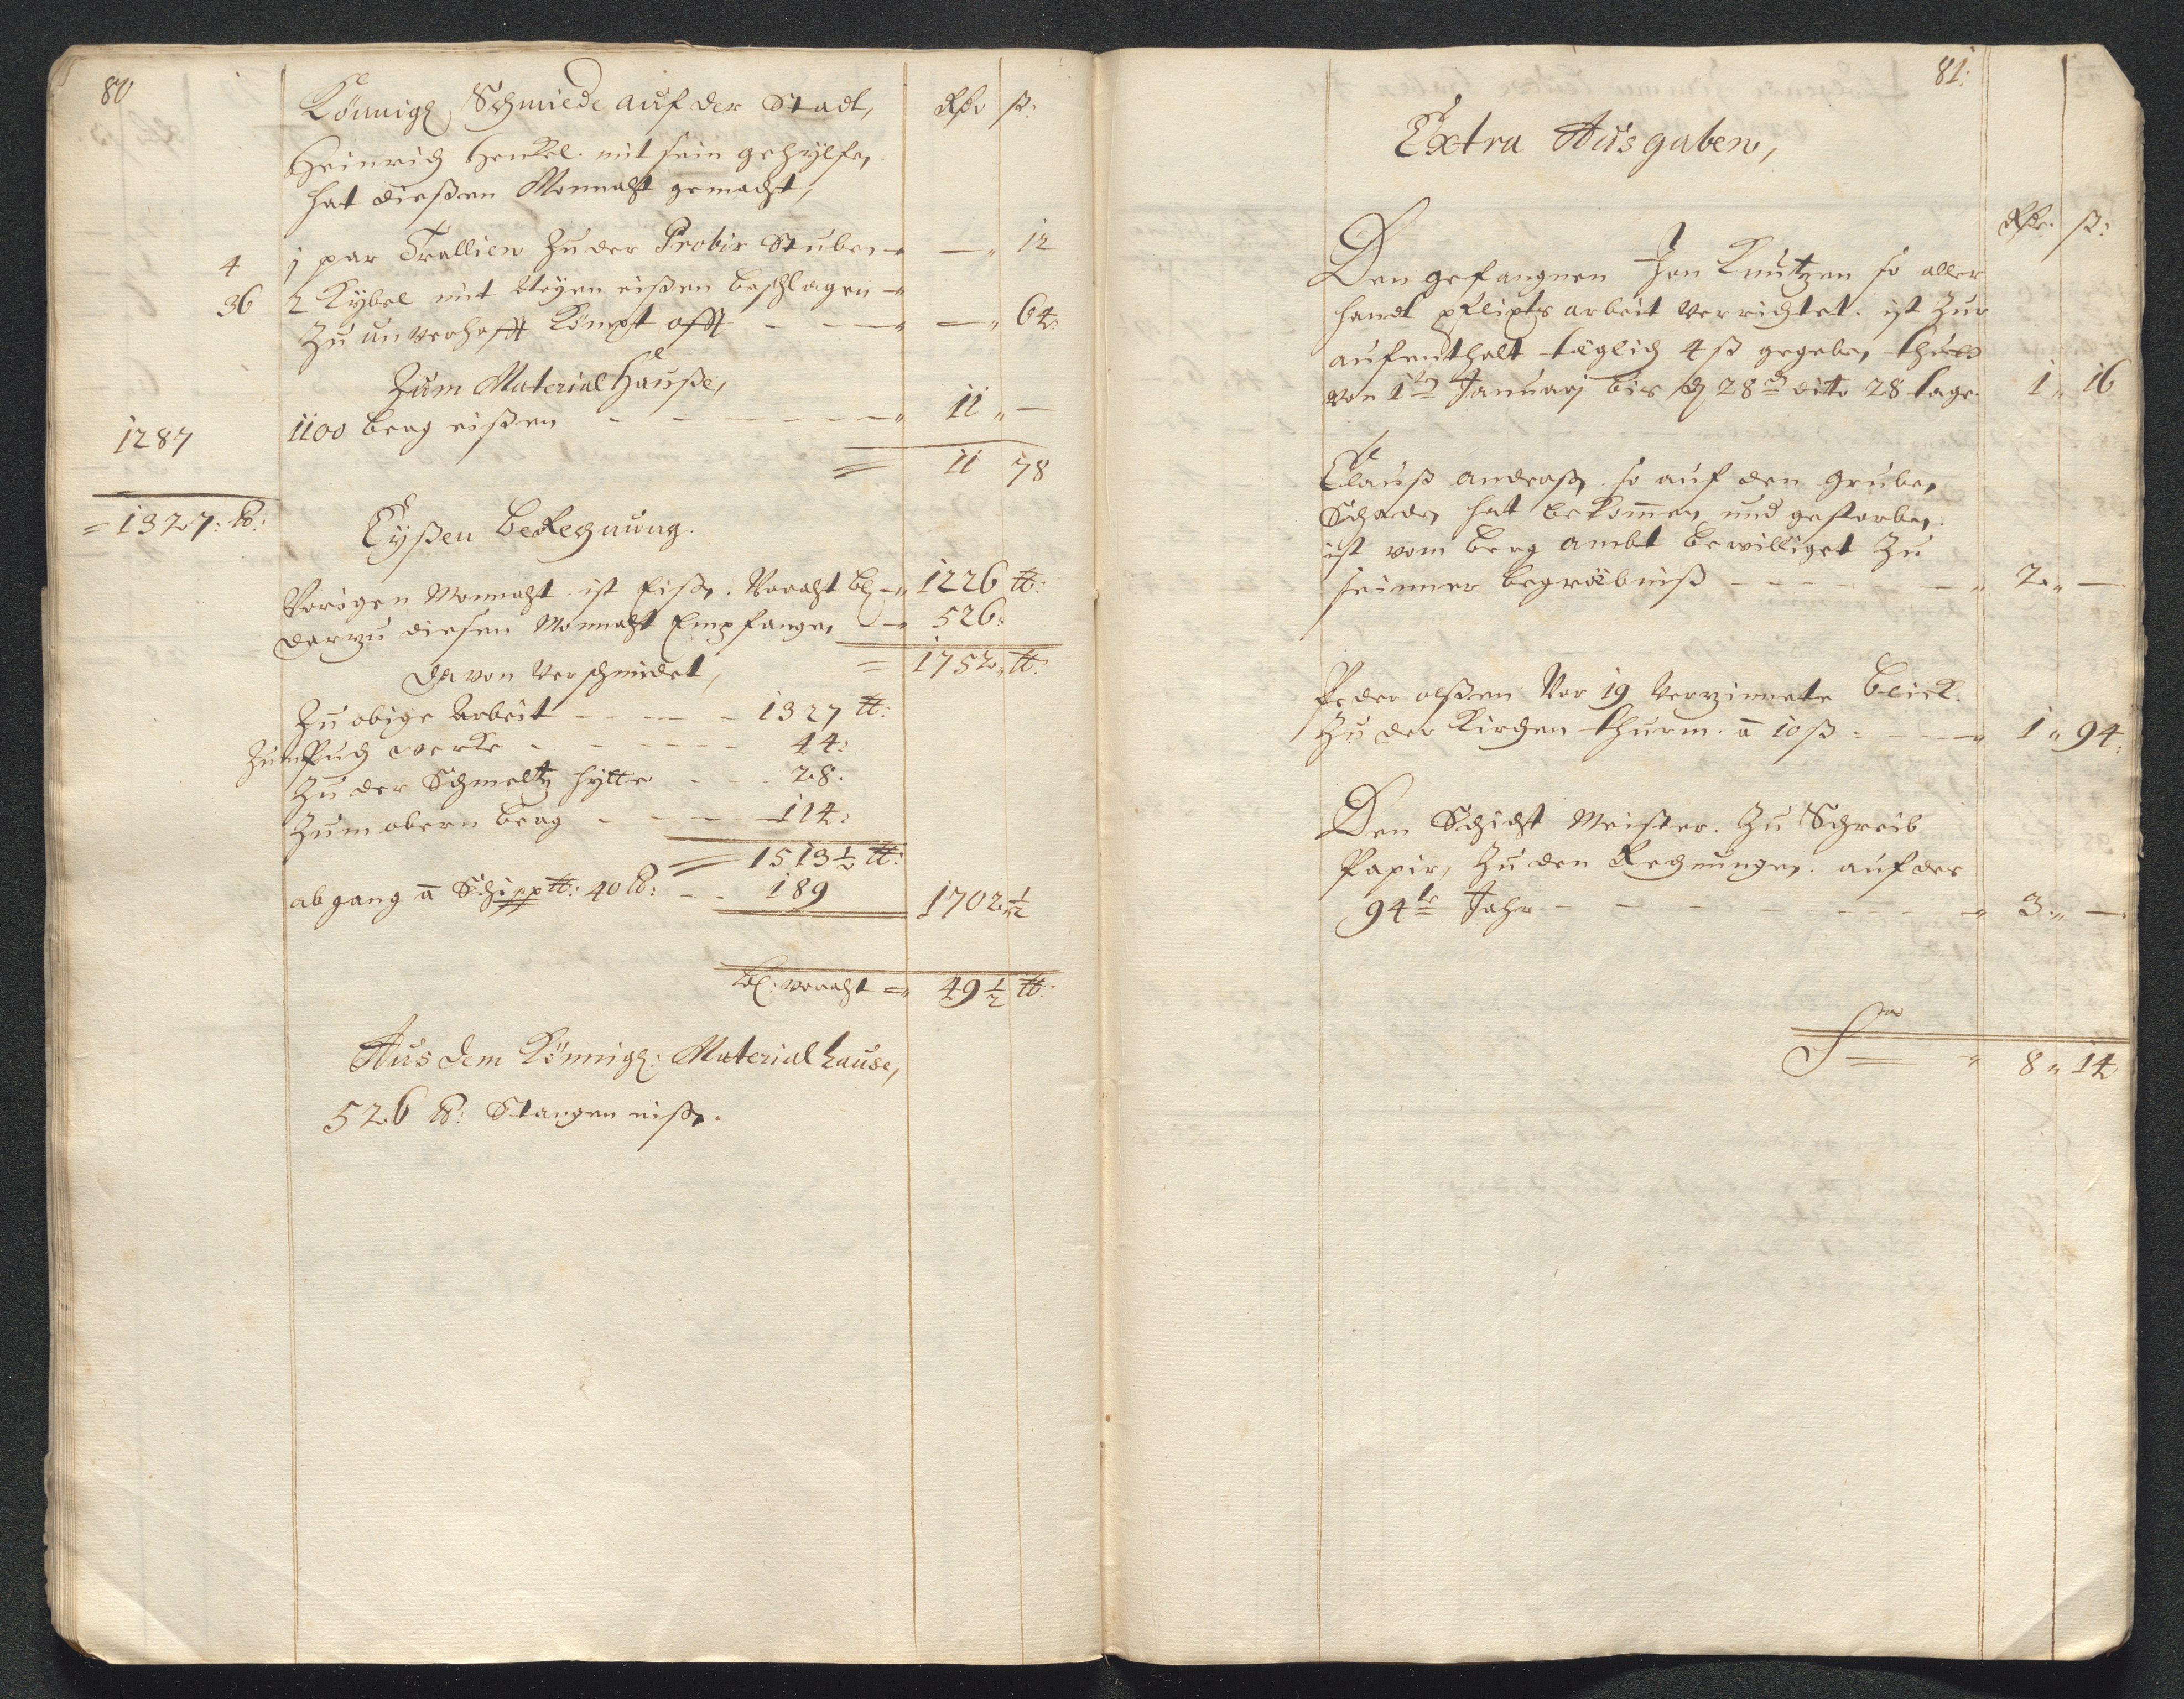 80
Königl Schmiede auf der Stadt, Rdr ß:
Heinrich Henckel mit sein gehylfen,
hat dießen Monnaht gemacht,
4 1 par Trallien Zu der Probir Stuben — „ 12
36 2 Kybel mit eißen beschlagen
Zu unverhofft Kömpt offt — — — „ 64:
Zum Material Hauße,
1287 1100 berg eißen — — — 11 „ —
= 11 78
= 1327: ℔:
Eyßen Berechnung.
Vorigen Monnaht ist Eißen Voraht bl — 1226 ℔:
darzu diesen Monnaht Empfangen — 526:
= 1752 „ ℔:
Davon Verschmidet,
Zu obige Arbeit — — — 1327 ℔:
Zum Puch werke — — — 44:
Zu der Schmeltz hytte — — 28:
Zum obern berg — — — 114:
= 1513 ½ ℔:
abgang a Schipp℔: 40 ℔: — — 189 1702 „ ½
bl: voraht = 49 ½ ℔:
Aus dem Königl: Material hause,
526 ℔: Stangen eißen.
81:
Extra Ausgaben,
Rdr. ß:
Den gefangnen Jon Knutzen so aller
handt pflichts arbeit verrichtet. ist Zur
aufenthalt täglich 4 ß gegeben, thutt
von 1ten Januarj bis d 28 dito 28 tage. 1 „ 16
Clauß Andersen so auf den gruben
Schaden hat bekommen und gestorben.
ist vom berg ambt bewilliget Zu
seinner begräbniß — — — 2 „ —
Peder olßen Vor 19 Verzinnete Bleck.
Zu der Kirchen thurm. a 10 ß: — — 1 „ 94:
Den Schicht Meister. Zu Schreib
Papir, Zu den Rechnungen. auf der
94te Jahr — — — 3 „ —
Sa = „ 8 „ 14